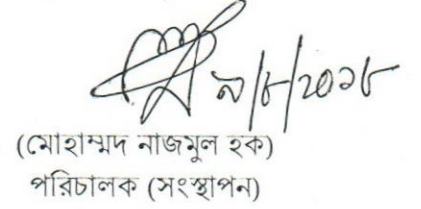 ৯/৮/২০১৮
(মোহাম্মদ নাজমুল হক)
পরিচালক (সংস্থাপন)